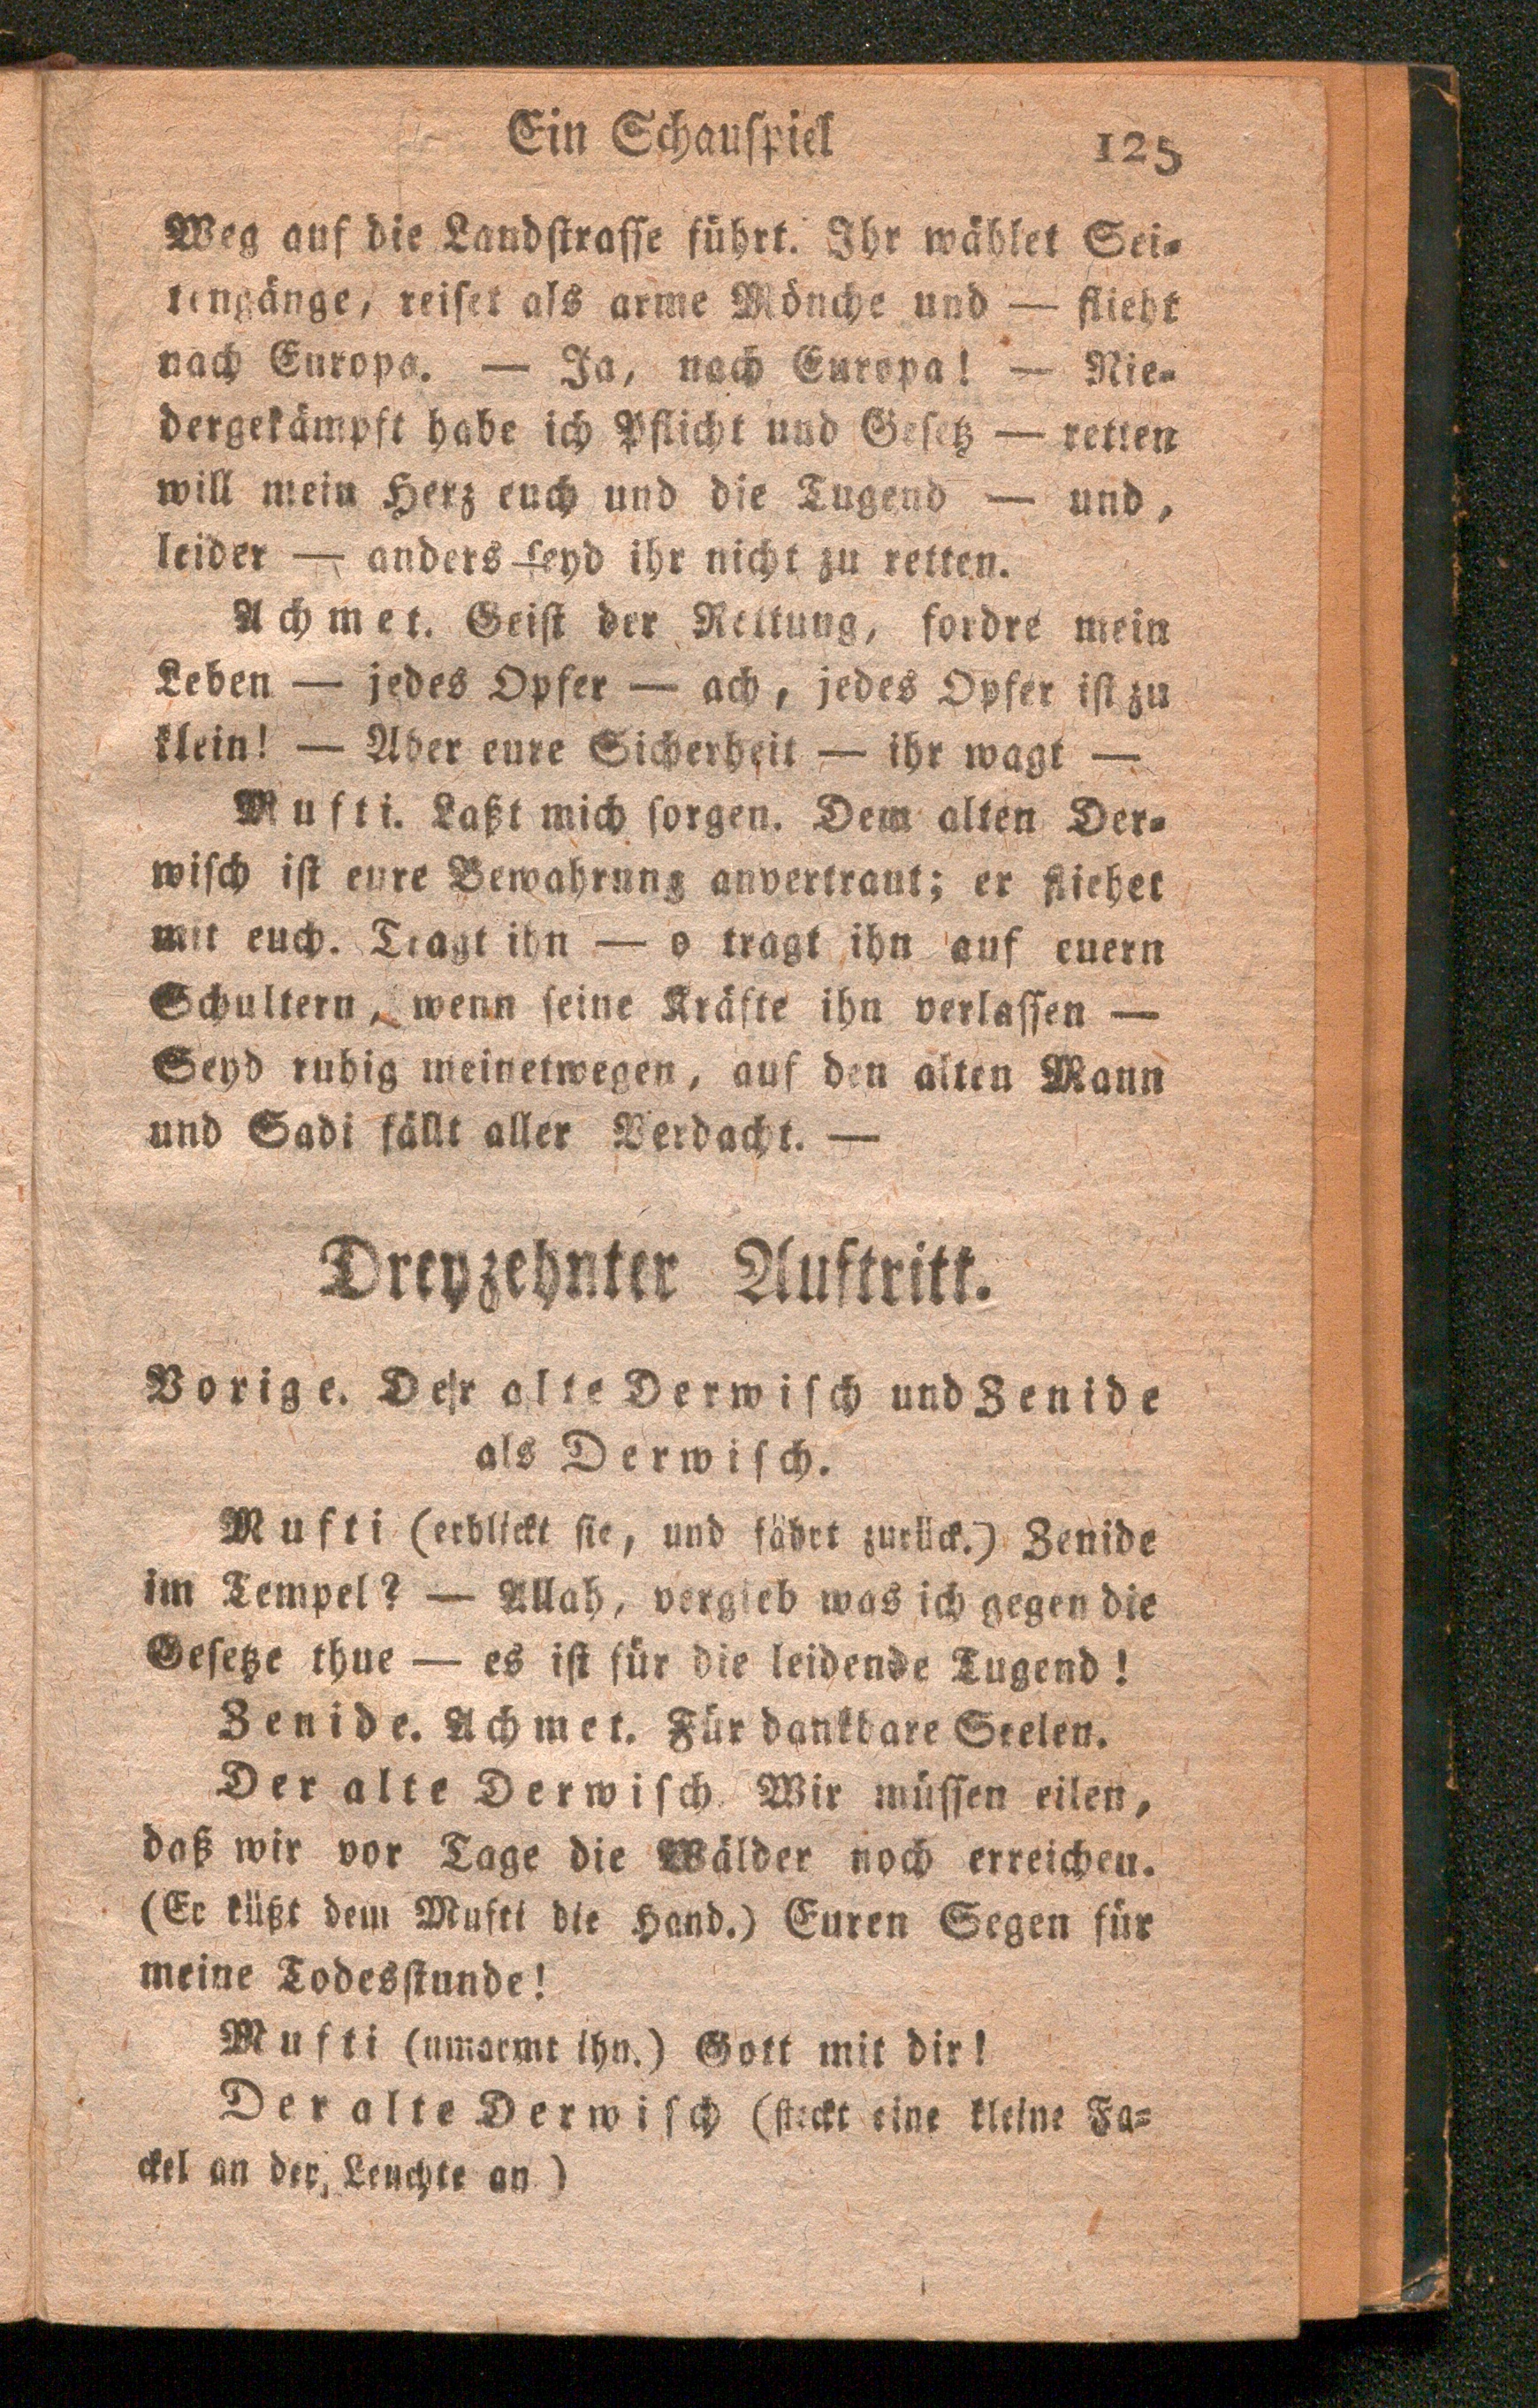 Ein Schauſpiel 125
Weg auf die Landſtraſſe führt. Ihr wählet Sei-
tengänge, reiſet als arme Mönche und — flieht
nach Europa. — Ja, nach Europa! — Nie-
dergekämpft habe ich Pflicht und Geſetz — retten
will mein Herz euch und die Tugend — und,
leider — anders ſeyd ihr nicht zu retten.
Achmet. Geiſt der Rettung, fordre mein
Leben — jedes Opfer — ach, jedes Opfer iſt zu
klein! — Aber eure Sicherheit — ihr wagt —
Mufti. Laßt mich ſorgen. Dem alten Der-
wiſch iſt eure Bewahrung anvertraut; er fliehet
mit euch. Tragt ihn — o tragt ihn auf euern
Schultern, wenn ſeine Kräfte ihn verlaſſen —
Seyd ruhig meinetwegen, auf den alten Mann
und Sadi fällt aller Verdacht. —
Dreyzehnter Auftritt.
Vorige. Der alte Derwiſch und Zenide
als Derwiſch.
Mufti (erblickt ſie, und fährt zurück.) Zenide
im Tempel? — Allah, vergieb was ich gegen die
Geſetze thue — es iſt für die leidende Tugend!
Zenide. Achmet. Für dankbare Seelen.
Der alte Derwiſch Wir müſſen eilen,
daß wir vor Tage die Wälder noch erreichen.
(Er küßt dem Mufti die Hand.) Euren Segen für
meine Todesſtunde!
Mufti (umarmt ihn.) Gott mit dir!
Der alte Derwiſch (ſteckt eine kleine Fa-
ckel an der Leuchte an )